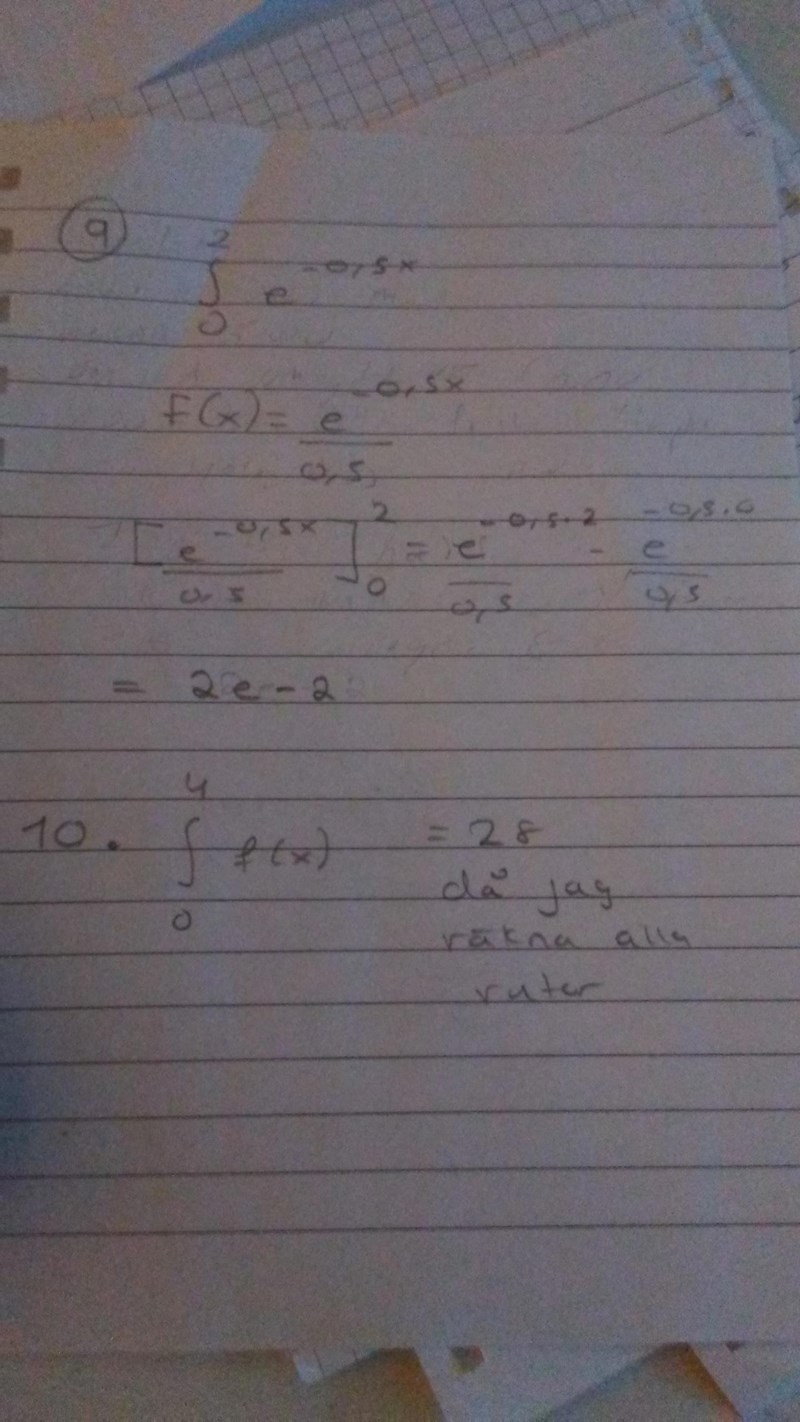 9
2
∫ e^-0,5x
0
F(x) = e^-0,5x / 0,5
[e^-0,5x / 0,5]²₀ = e^-0,5·2 / 0,5 - e^-0,5·0 / 0,5
= 2e - 2
4
10. ∫ f(x) = 28
0
då jag
räkna alla
ruter